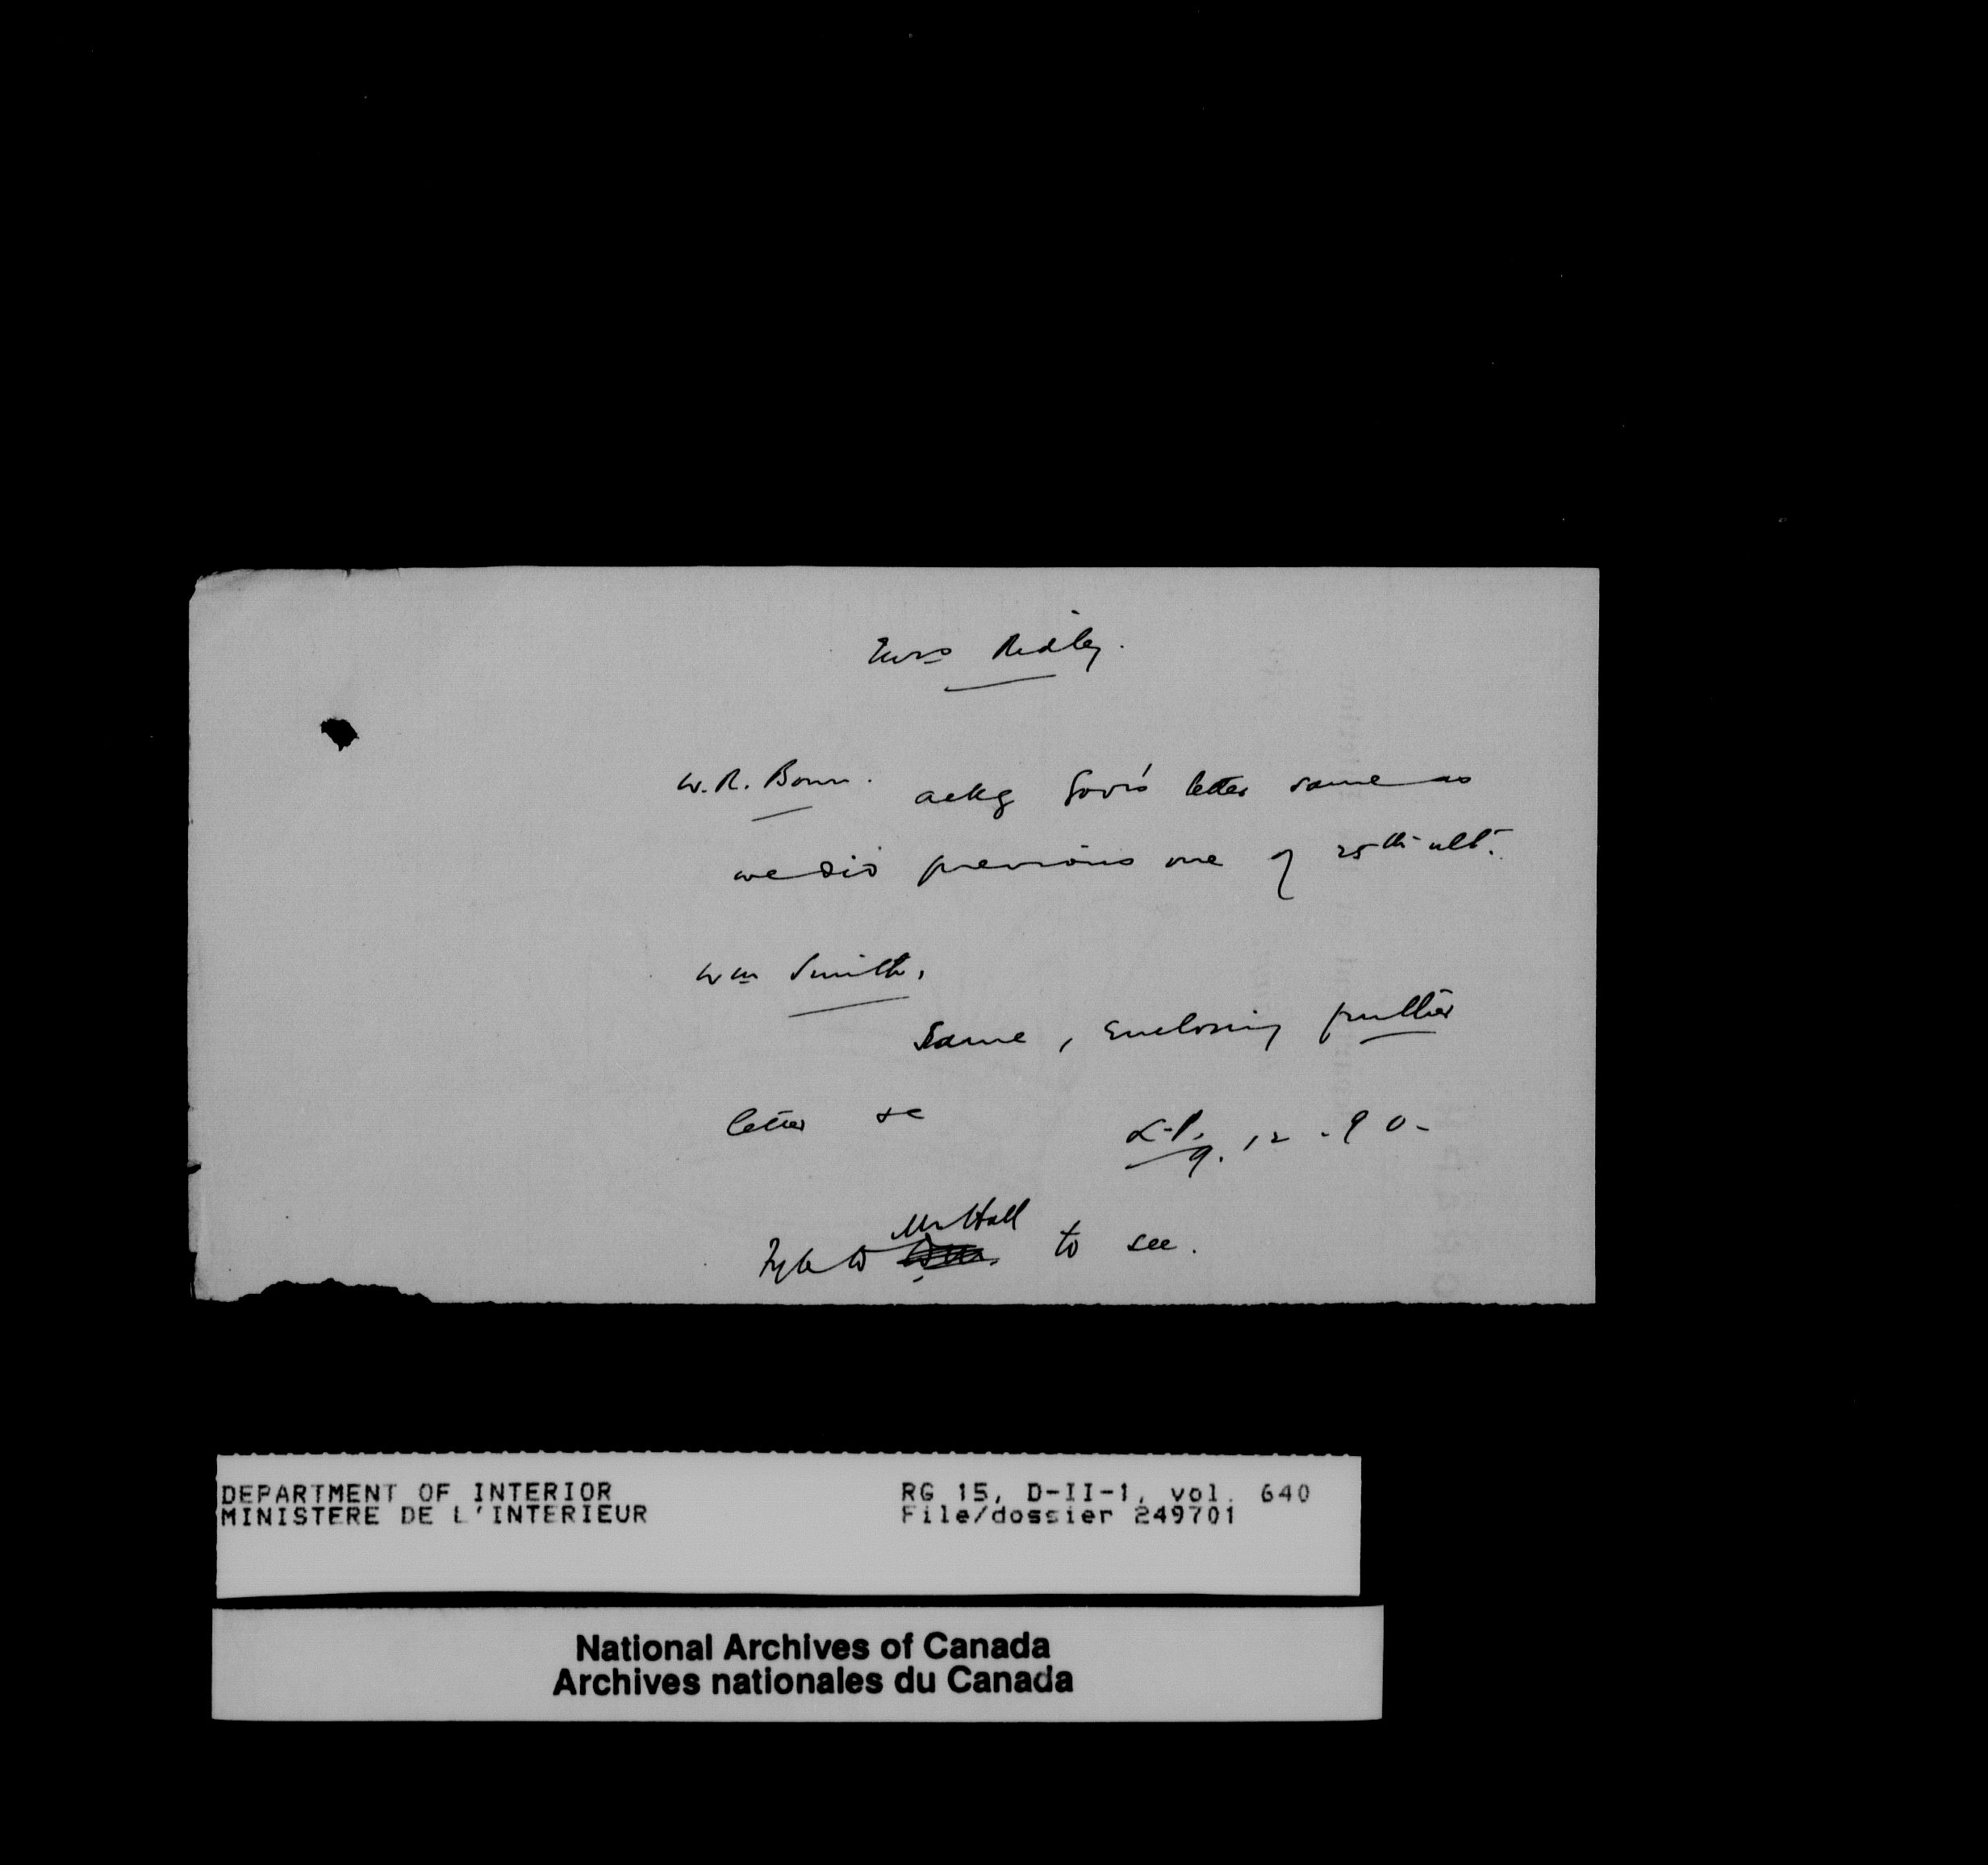 Ridley.
W. R. Bown. ackg Gov's letter same as
we did previous one of 25th ult.
Wm Smith,
Same, enclosing further
letter &c
L.P. 9.12.90-
Mr Hall
to see.
DEPARTMENT OF INTERIOR RG 15, D-II-1, vol. 640
MINISTERE DE L'INTERIEUR File/dossier 249701
National Archives of Canada
Archives nationales du Canada